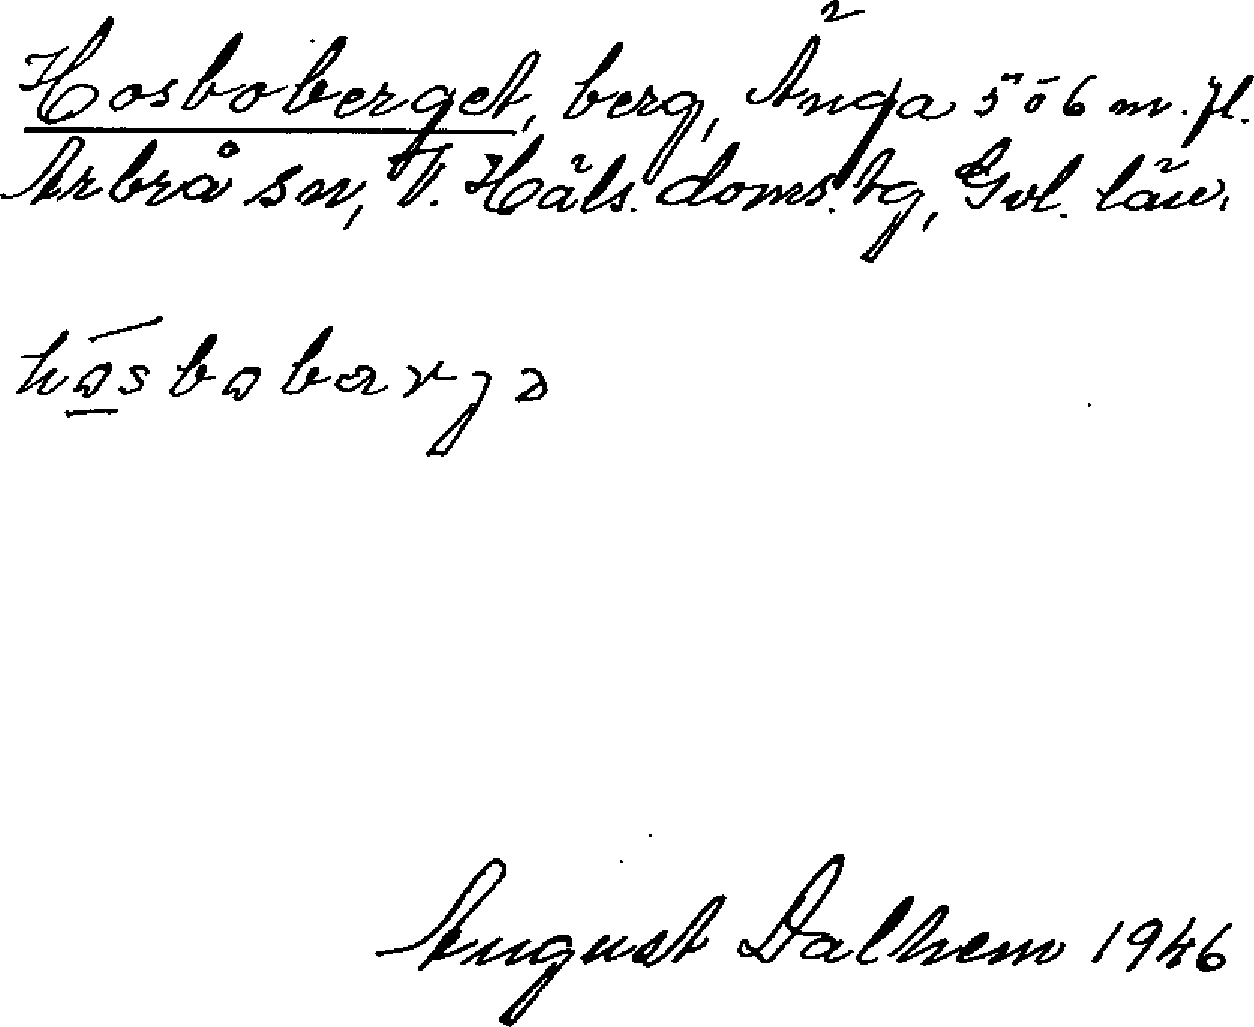 Hosboberget, berg, Änga 5¨ö 6 m. fl.
Arbrå sn, V. Häls. doms. tg, Gvl. län.
håsbobarjə
August Dalhem 1946